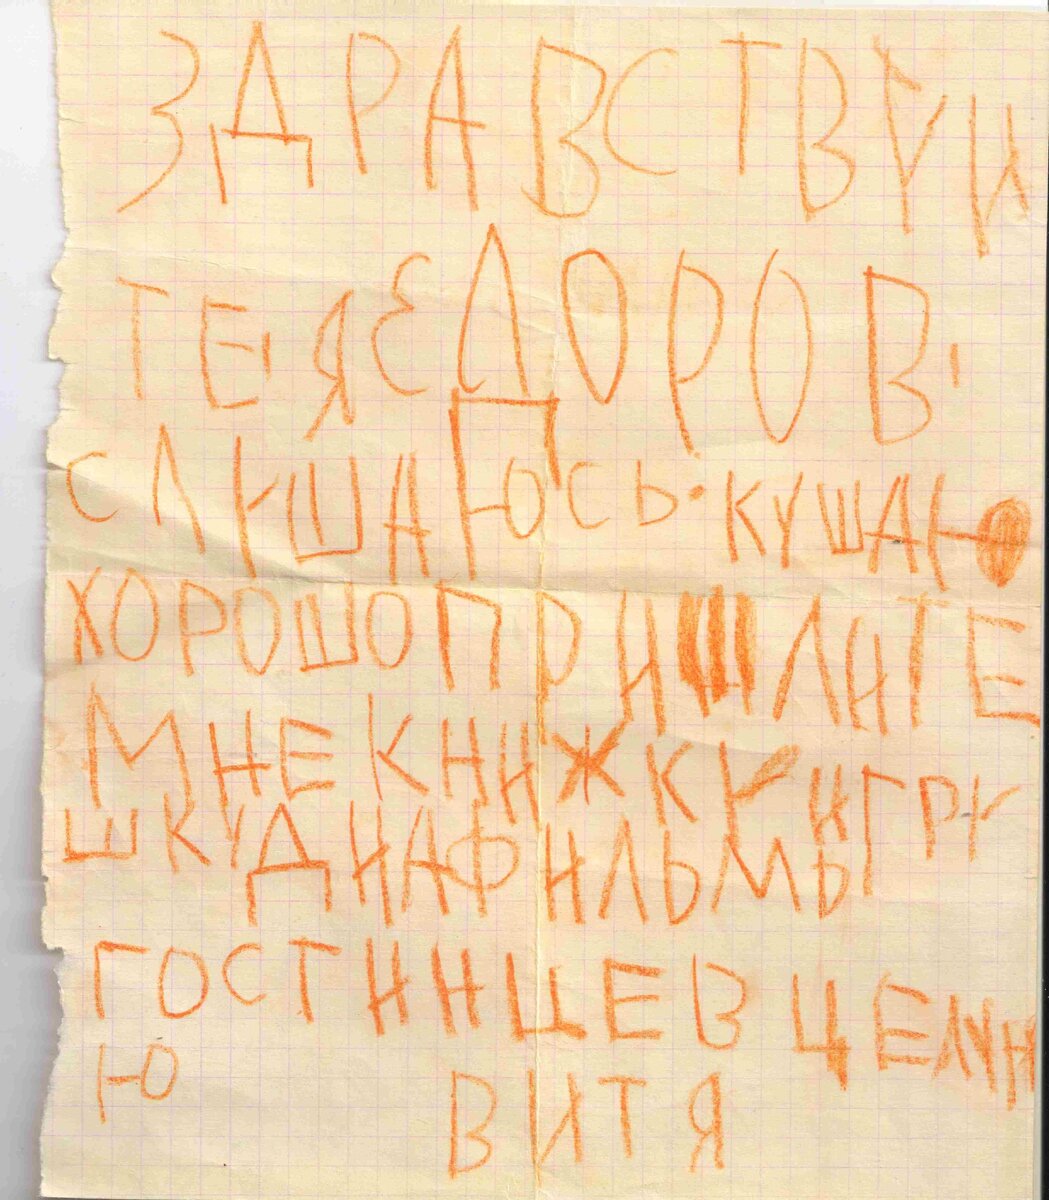 ЗДРАВСТВУИ
ТЕ. Я ЗДОРОВ.
СЛУШАЮСЬ. КУШАЮ
ХОРОШО ПРИШЛИТЕ
МНЕ КНИЖКУ ИГРУ
ШКУ ДИАФИЛЬМЫ
ГОСТИНЦЕВ ЦЕЛУИ
Ю
ВИТЯ